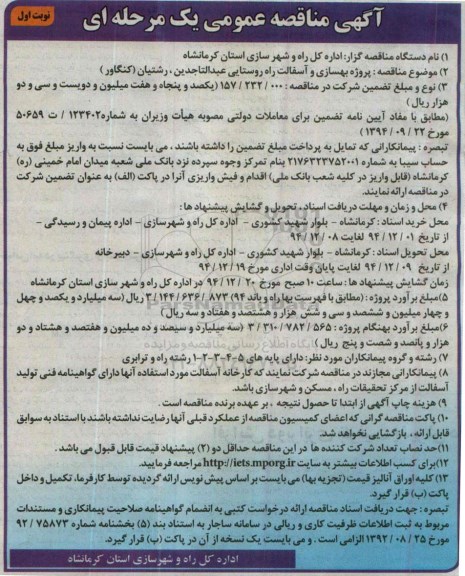 آگهی مناقصه عمومی یک مرحله ای
نوبت اول
۱) نام دستگاه مناقصه گزار: اداره کل راه و شهر سازی استان کرمانشاه
۲) موضوع مناقصه : پروژه بهسازی و آسفالت راه روستایی عبدالتاجدین ، رشتیان (کنگاور )
۳) نوع و مبلغ تضمین شرکت در مناقصه : ۰۰۰ / ۲۳۲ / ۱۵۷ (یکصد و پنجاه و هفت میلیون و دویست و سی و دو
هزار ریال )
(مطابق با مفاد آیین نامه تضمین برای معاملات دولتی مصوبه هیأت وزیران به شماره ۱۲۳۴۰۲/ ت ۵۰۶۵۹
مورخ ۲۲ / ۰۹ / ۱۳۹۴ )
تبصره : پیمانکارانی که تمایل به پرداخت مبلغ تضمین را داشته باشند ، می بایست نسبت به واریز مبلغ فوق به
حساب سیبا به شماره ۲۱۷۶۴۲۳۷۵۲۰۰۱ بنام تمرکز وجوه سپرده نزد بانک ملی شعبه میدان امام خمینی (ره)
کرمانشاه (قابل واریز در کلیه شعب بانک ملی) اقدام و فیش واریزی آنرا در پاکت (الف) به عنوان تضمین شرکت
در مناقصه ارائه نمایند.
۴) محل و زمان و مهلت دریافت اسناد ، تحویل و گشایش پیشنهاد ها :
محل خرید اسناد : کرمانشاه - بلوار شهید کشوری - اداره کل راه و شهرسازی - اداره پیمان و رسیدگی -
از تاریخ ۰۱ / ۱۲ / ۹۴ لغایت ۰۸ / ۱۲ / ۹۴
محل تحویل اسناد : کرمانشاه - بلوار شهید کشوری - اداره کل راه و شهرسازی - دبیرخانه
از تاریخ ۰۹ / ۱۲ / ۹۴ لغایت پایان وقت اداری مورخ ۱۹ / ۱۲ / ۹۴
زمان گشایش پیشنهاد ها : ساعت ۱۰ صبح مورخ ۲۰ / ۱۲ / ۹۴ در اداره کل راه و شهر سازی استان کرمانشاه
۵) مبلغ بر آورد پروژه : (مطابق با فهرست بها راه و باند ۹۴) ۸۷۳ / ۶۳۶ / ۱۴۴ / ۳ ریال (سه میلیارد و یکصد و چهل
و چهار میلیون و ششصد و سی و شش هزار و هشتصد و هفتاد و سه ریال)
۶) مبلغ بر آورد بهنگام پروژه : ۵۶۵ / ۷۸۲ / ۳۱۰ / ۳ (سه میلیارد و سیصد و ده میلیون و هفتصد و هشتاد و دو
هزار و پانصد و شصت و پنج ریال )
۷) رشته و گروه پیمانکاران مورد نظر : دارای پایه های ۵-۴-۳-۲-۱ رشته راه و ترابری
۸) پیمانکارانی مجازند در مناقصه شرکت نمایند که کارخانه آسفالت مورد استفاده آنها دارای گواهینامه فنی تولید
آسفالت از مرکز تحقیقات راه ، مسکن و شهرسازی باشد.
۹) هزینه چاپ آگهی از ابتدا تا حصول نتیجه ، بر عهده برنده مناقصه است .
۱۰) پاکت مناقصه گرانی که اعضای کمیسیون مناقصه از عملکرد قبلی آنها رضایت نداشته باشند با استناد به سوابق
قابل ارائه ، بازگشایی نخواهد شد.
۱۱) حد نصاب تعداد شرکت کننده ها در این مناقصه حداقل دو (۲) پیشنهاد قیمت قابل قبول می باشد .
۱۲) برای کسب اطلاعات بیشتر به سایت http://iets.mporg.ir مراجعه فرمایید.
۱۳) کلیه اوراق آنالیز قیمت (تجزیه بها) می بایست بر اساس پیش نویس ارائه گردیده توسط کارفرما، تکمیل و داخل
پاکت (ب) قرار گیرد.
تبصره : جهت دریافت اسناد مناقصه ارائه درخواست کتبی به انضمام گواهینامه صلاحیت پیمانکاری و مستندات
مربوط به ثبت اطلاعات ظرفیت کاری و ریالی در سامانه ساجار به استناد بند (۵) بخشنامه شماره ۷۵۸۷۳ / ۹۲
مورخ ۲۵ / ۰۸ / ۱۳۹۲ الزامی است . و می بایست یک نسخه از آن در پاکت (ب) قرار گیرد.
اداره کل راه و شهرسازی استان کرمانشاه